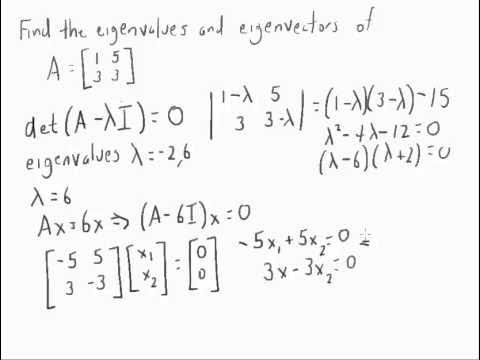 Find the eigenvalues and eigenvectors of
A = [1 5
3 3]
det(A - λI) = 0
|1-λ 5
3 3-λ| = (1-λ)(3-λ) - 15
λ² - 4λ - 12 = 0
(λ-6)(λ+2) = 0
eigenvalues λ = -2, 6
λ = 6
Ax = 6x ⇒ (A - 6I)x = 0
[-5 5
3 -3] [x₁
x₂] = [0
0]
-5x₁ + 5x₂ = 0
3x - 3x₂ = 0